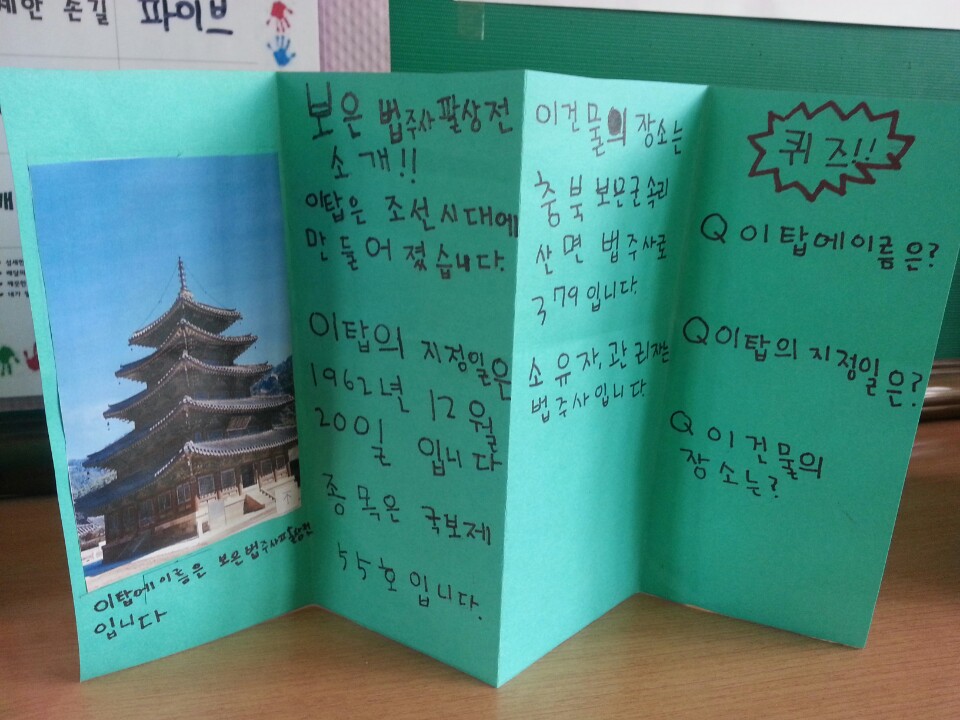 세안 손길 파이브
이탑에이름은 보은법주사팔상전
입니다
보은 법주사팔상전
소개!!
이탑은 조선시대에
만들어졌습니다.
이탑의 지정일은
1962년 12월
20일 입니다
종목은 국보제
55호입니다.
이건물의 장소는
충북보은군속리
산면 법주사로
국79입니다.
소유자,관리자는
법주사입니다.
퀴즈!!
Q 이탑에이름은?
Q이탑의지정일은?
Q 이건물의
장소는?